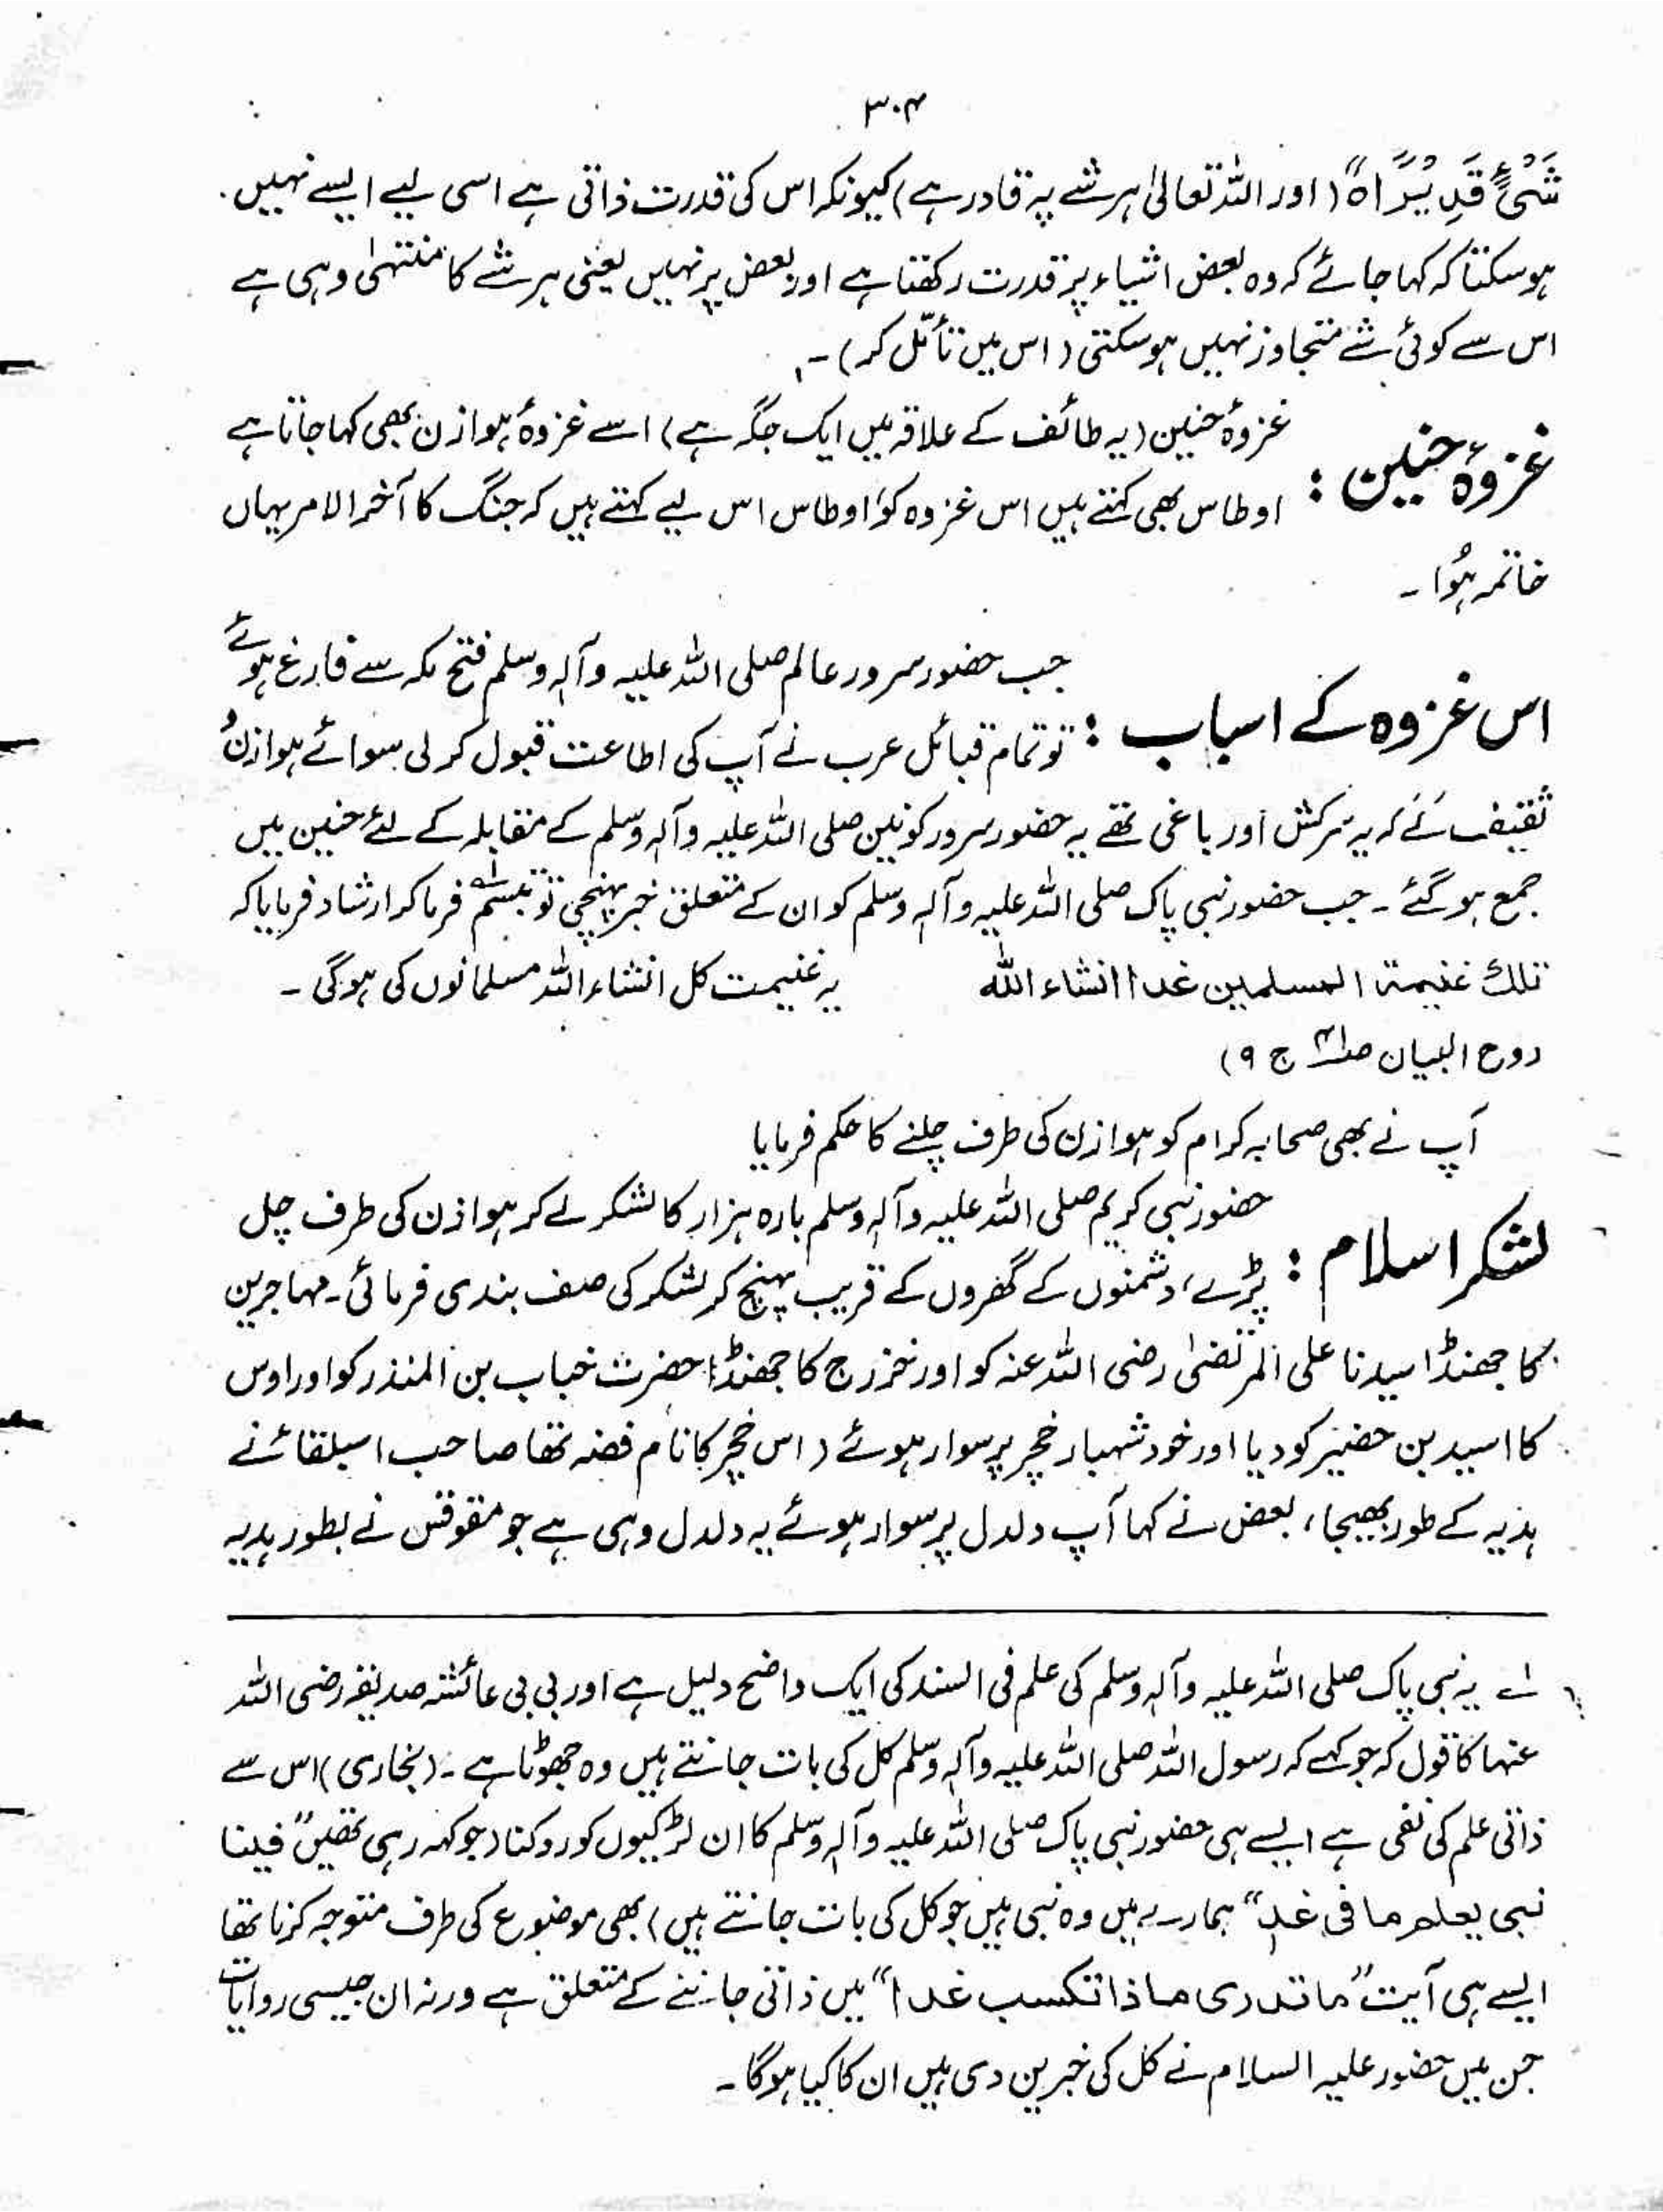 ۳۰۴
شَیْءٍ قَدِیْرًا ہ" (اور اللہ تعالیٰ ہر شے پہ قادر ہے) کیونکہ اس کی قدرت ذاتی ہے اسی لیے ایسے نہیں
ہوسکتا کہ کہا جائے کہ وہ بعض اشیاء پر قدرت رکھتا ہے اور بعض پر نہیں یعنی ہر شے کا منتہیٰ وہی ہے
اس سے کوئی شے متجاوز نہیں ہوسکتی (اس میں تأمّل کر)۔
غزوۂ حنین : غزوۂ حنین (یہ طائف کے علاقہ میں ایک جگہ ہے) اسے غزوۂ ہوازن بھی کہا جاتا ہے
اوطاس بھی کہتے ہیں اس غزوہ کو اوطاس اس لیے کہتے ہیں کہ جنگ کا آخر الامر یہاں
خاتمہ ہُوا ۔
اس غزوہ کے اسباب : جب حضور سرور عالم صلی اللہ علیہ وآلہ وسلم فتح مکہ سے فارغ ہوئے
تو تمام قبائل عرب نے آپ کی اطاعت قبول کر لی سوائے ہوازن و
ثقیف کے کہ یہ سرکش اور باغی تھے یہ حضور سرور کونین صلی اللہ علیہ وآلہ وسلم کے مقابلہ کے لئے حنین میں
جمع ہو گئے ۔ جب حضور نبی پاک صلی اللہ علیہ وآلہ وسلم کو ان کے متعلق خبر پہنچی تو تبسّم لے فرما کر ارشاد فرمایا کہ
تلك غنیمۃ المسلمین غدا انشاء اللہ یہ غنیمت کل انشاء اللہ مسلمانوں کی ہوگی ۔
روح البیان صـ ج ۹)
آپ نے بھی صحابہ کرام کو ہوازن کی طرف چلنے کا حکم فرمایا
لشکر اسلام : حضور نبی کریم صلی اللہ علیہ وآلہ وسلم بارہ ہزار کا لشکر لے کر ہوازن کی طرف چل
پڑے، دشمنوں کے گھروں کے قریب پہنچ کر لشکر کی صف بندی فرمائی ۔ مہاجرین
کا جھنڈا سیدنا علی المرتضیٰ رضی اللہ عنہ کو اور خزرج کا جھنڈا حضرت خباب بن المنذر کو اور اوس
کا اسید بن حضیر کو دیا اور خود شہبار خچر پر سوار ہوئے (اس خچر کا نام فضہ تھا صاحب اسبلقاء نے
ہدیہ کے طور بھیجا، بعض نے کہا آپ دلدل پر سوار ہوئے یہ دلدل وہی ہے جو مقوقس نے بطور ہدیہ
لے یہ نبی پاک صلی اللہ علیہ وآلہ وسلم کی علم فی السند کی ایک واضح دلیل ہے اور بی بی عائشہ صدیقہ رضی اللہ
عنہا کا قول کہ جو کہے کہ رسول اللہ صلی اللہ علیہ وآلہ وسلم کل کی بات جانتے ہیں وہ جھوٹا ہے ۔ (بخاری) اس سے
ذاتی علم کی نفی ہے ایسے ہی حضور نبی پاک صلی اللہ علیہ وآلہ وسلم کا ان لڑکیوں کو روکنا (جو کہہ رہی تھیں "فینا
نبی یعلم ما فی غد" ہمارے میں وہ نبی ہیں جو کل کی بات جانتے ہیں) بھی موضوع کی طرف متوجہ کرنا تھا
ایسے ہی آیت "ما تدری ماذا تکسب غدا" میں ذاتی جاننے کے متعلق ہے ورنہ ان جیسی روایات
جن میں حضور علیہ السلام نے کل کی خبریں دی ہیں ان کا کیا ہوگا ۔